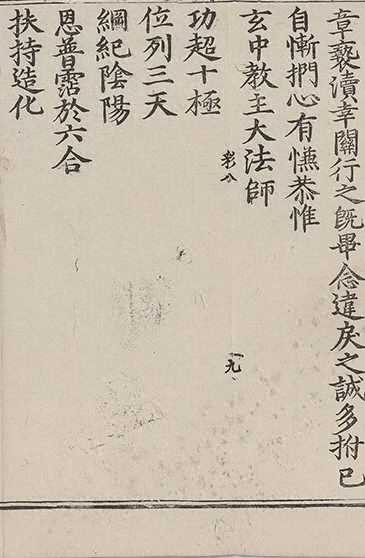 章褻瀆幸關行之旣畢念違戾之誠多拊已
自慚捫心有慊恭惟
玄中教主大法師
八
九
功超十極
位列三天
綱紀陰陽
恩普霑於六合
扶持造化